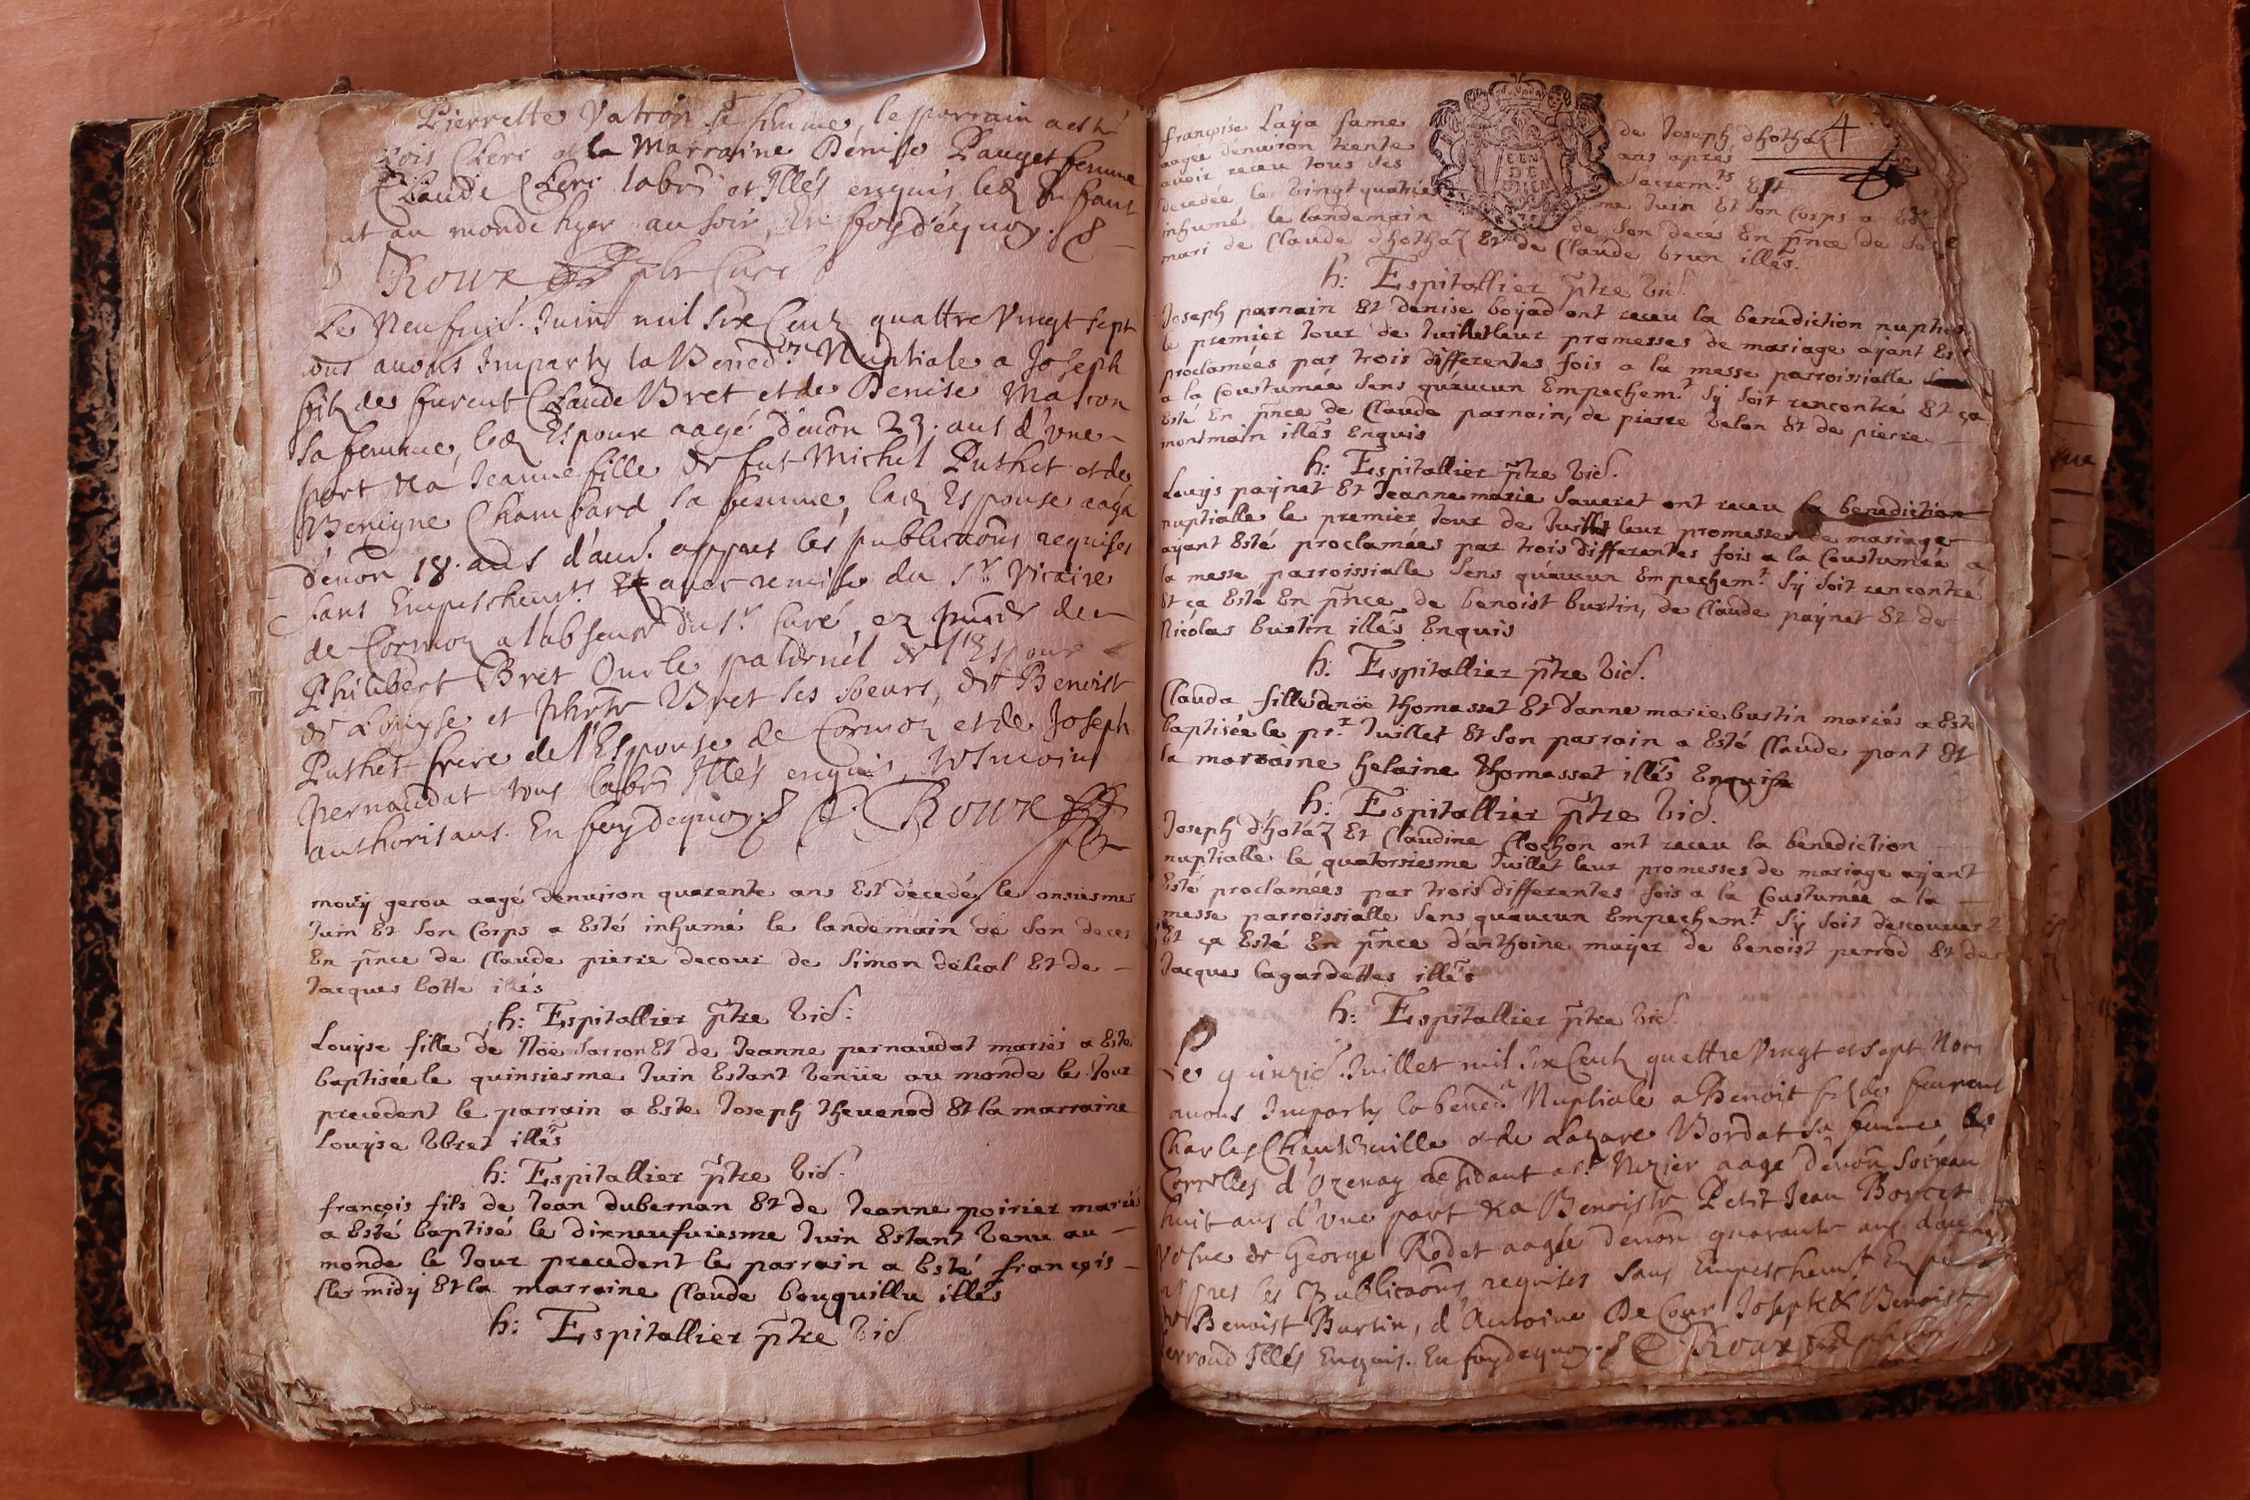 Pierrette Vatron sa femme, le parrain a esté
Claude Cleri labrs et Illés enquis, led Enfant
au monde hyer au soir, En foy dequoy.
Roux pbr Curé
Le Neufvie. Juin mil six Centz quattre Vingt sept
ous avons Imparty la Benedon Nuptiale a Joseph
filz de furent Claude Bret et de Denise Mason
sa femme, led Espoux aagé d'envon 23. ans d'vne
part & a Jeanne fille de fut Michel Puthet et de
Benigne Chambard sa femme, lad Espouse aagée
d'envon 18. ans d'aue. appres les publicaons requises
sans Empeschemt. Et avec remise du Sr Vicaire
de Cormoz a l'absence du Sr. Curé, ez pnces de
Philibert Bret Oncle paternel de l'Espoux
de Louyse et Bret ses soeurs, de Benoist
Puthet frere de l'Espouse de Cormoz et de Joseph
Pernaudat tous labrs Illés enquis, tesmoins
authorisans. En foy dequoy. Roux
mouy gerou aagé denuiron quarente ans Est décedé le onsiesme
Juin Et son Corps a Esté inhumé le landemain de son deces
En pnce de Claude pierre decour de Simon deleal Et de
Jacques botte illés
h: Espitallier ptre vic:
Louyse fille de Noë sarron Et de Jeanne pernaudat mariés a Esté
baptisée le quinsiesme Juin Estant venüe au monde le Jour
precedent le parrain a Esté Joseph thevenod Et la marraine
Louyse bret illés
h: Espitallier ptre vic.
françois fils de Jean dubernan Et de Jeanne poirier mariés
a Esté baptisé le dixneufuiesme Juin Estant venu au
monde le Jour precedent le parrain a Esté françois
Clermidy Et la marraine Claude bouquillu illés
h: Espitallier ptre vic
4
françoise Laya fame de Joseph dhothaz
aagée denuiron trente ans apres
avoir receu tous ses Sacremts Est
decedée le vingt quatriesme Juin Et son Corps a Esté
inhumé le landemain de son deces En pnce de son
mari de Claude dhothaz Et de Claude brun illés.
h: Espitallier ptre vic.
Joseph parnain Et denise boyad ont receu la benediction nuptialle
le premier Jour de Juillet leur promesses de mariage ayant Esté
proclamées par trois differentes fois a la messe parroissialle
a la Coustumée sens quaucun Empechemt sy soit rencontré Et ça
Esté En pnce de Claude parnain, de pierre velon Et de pierre
montmain illés Enquis
h: Espitallier ptre vic.
Louys paynet Et Jeanne marie sauvert ont receu la benediction
nuptialle le premier Jour de Juillet leur promesses de mariage
ayant Esté proclamées par trois differentes fois a la Coustumée a
la messe parroissialle sens quaucun Empechemt sy soit rencontré
Et ça Esté En pnce de benoist bustin, de Claude paynet Et de
Nicolas bustin illés Enquis
h: Espitallier ptre vic.
Clauda fille de noë thomasset Et d'anne marie bustin mariés a Esté
baptisée le pr. Juillet Et son parrain a Esté Claude pont Et
la marraine helaine thomasset illés Enquis
h: Espitallier ptre vic.
Joseph d'hotáz Et Claudine Clochon ont receu la benediction
nuptialle le quatorsiesme Juillet leur promesses de mariage ayant
Esté proclamées par trois differentes fois a la Coustumée a la
messe parroissialle sens quaucun Empechemt sy soit descouvert
Et ça Esté En pnce d'anthoine muyer de benoist perrod Et de
Jacques lagardettes illés
h: Espitallier ptre vic.
Le quinzie. Juillet mil six Centz quattre Vingt et sept Nous
avons Imparty la bened. Nuptiale a Benoit filz de feurent
Charles et de Lazare Bordat sa femme de
d'Ozenay residant a St. Nizier aagé d'envon soixan
huit ans d'vne part & a Benoiste Petit Jean Boucet
vesve de George Rodet aagée d'envon quarante ans d'autre
appres les Publicaons requises sans Empeschemt. En pn
de Benoist Burtin, d'Antoine De Cour Joseph & Benoist
Perroud Illés Enquis. En foy dequoy. Roux